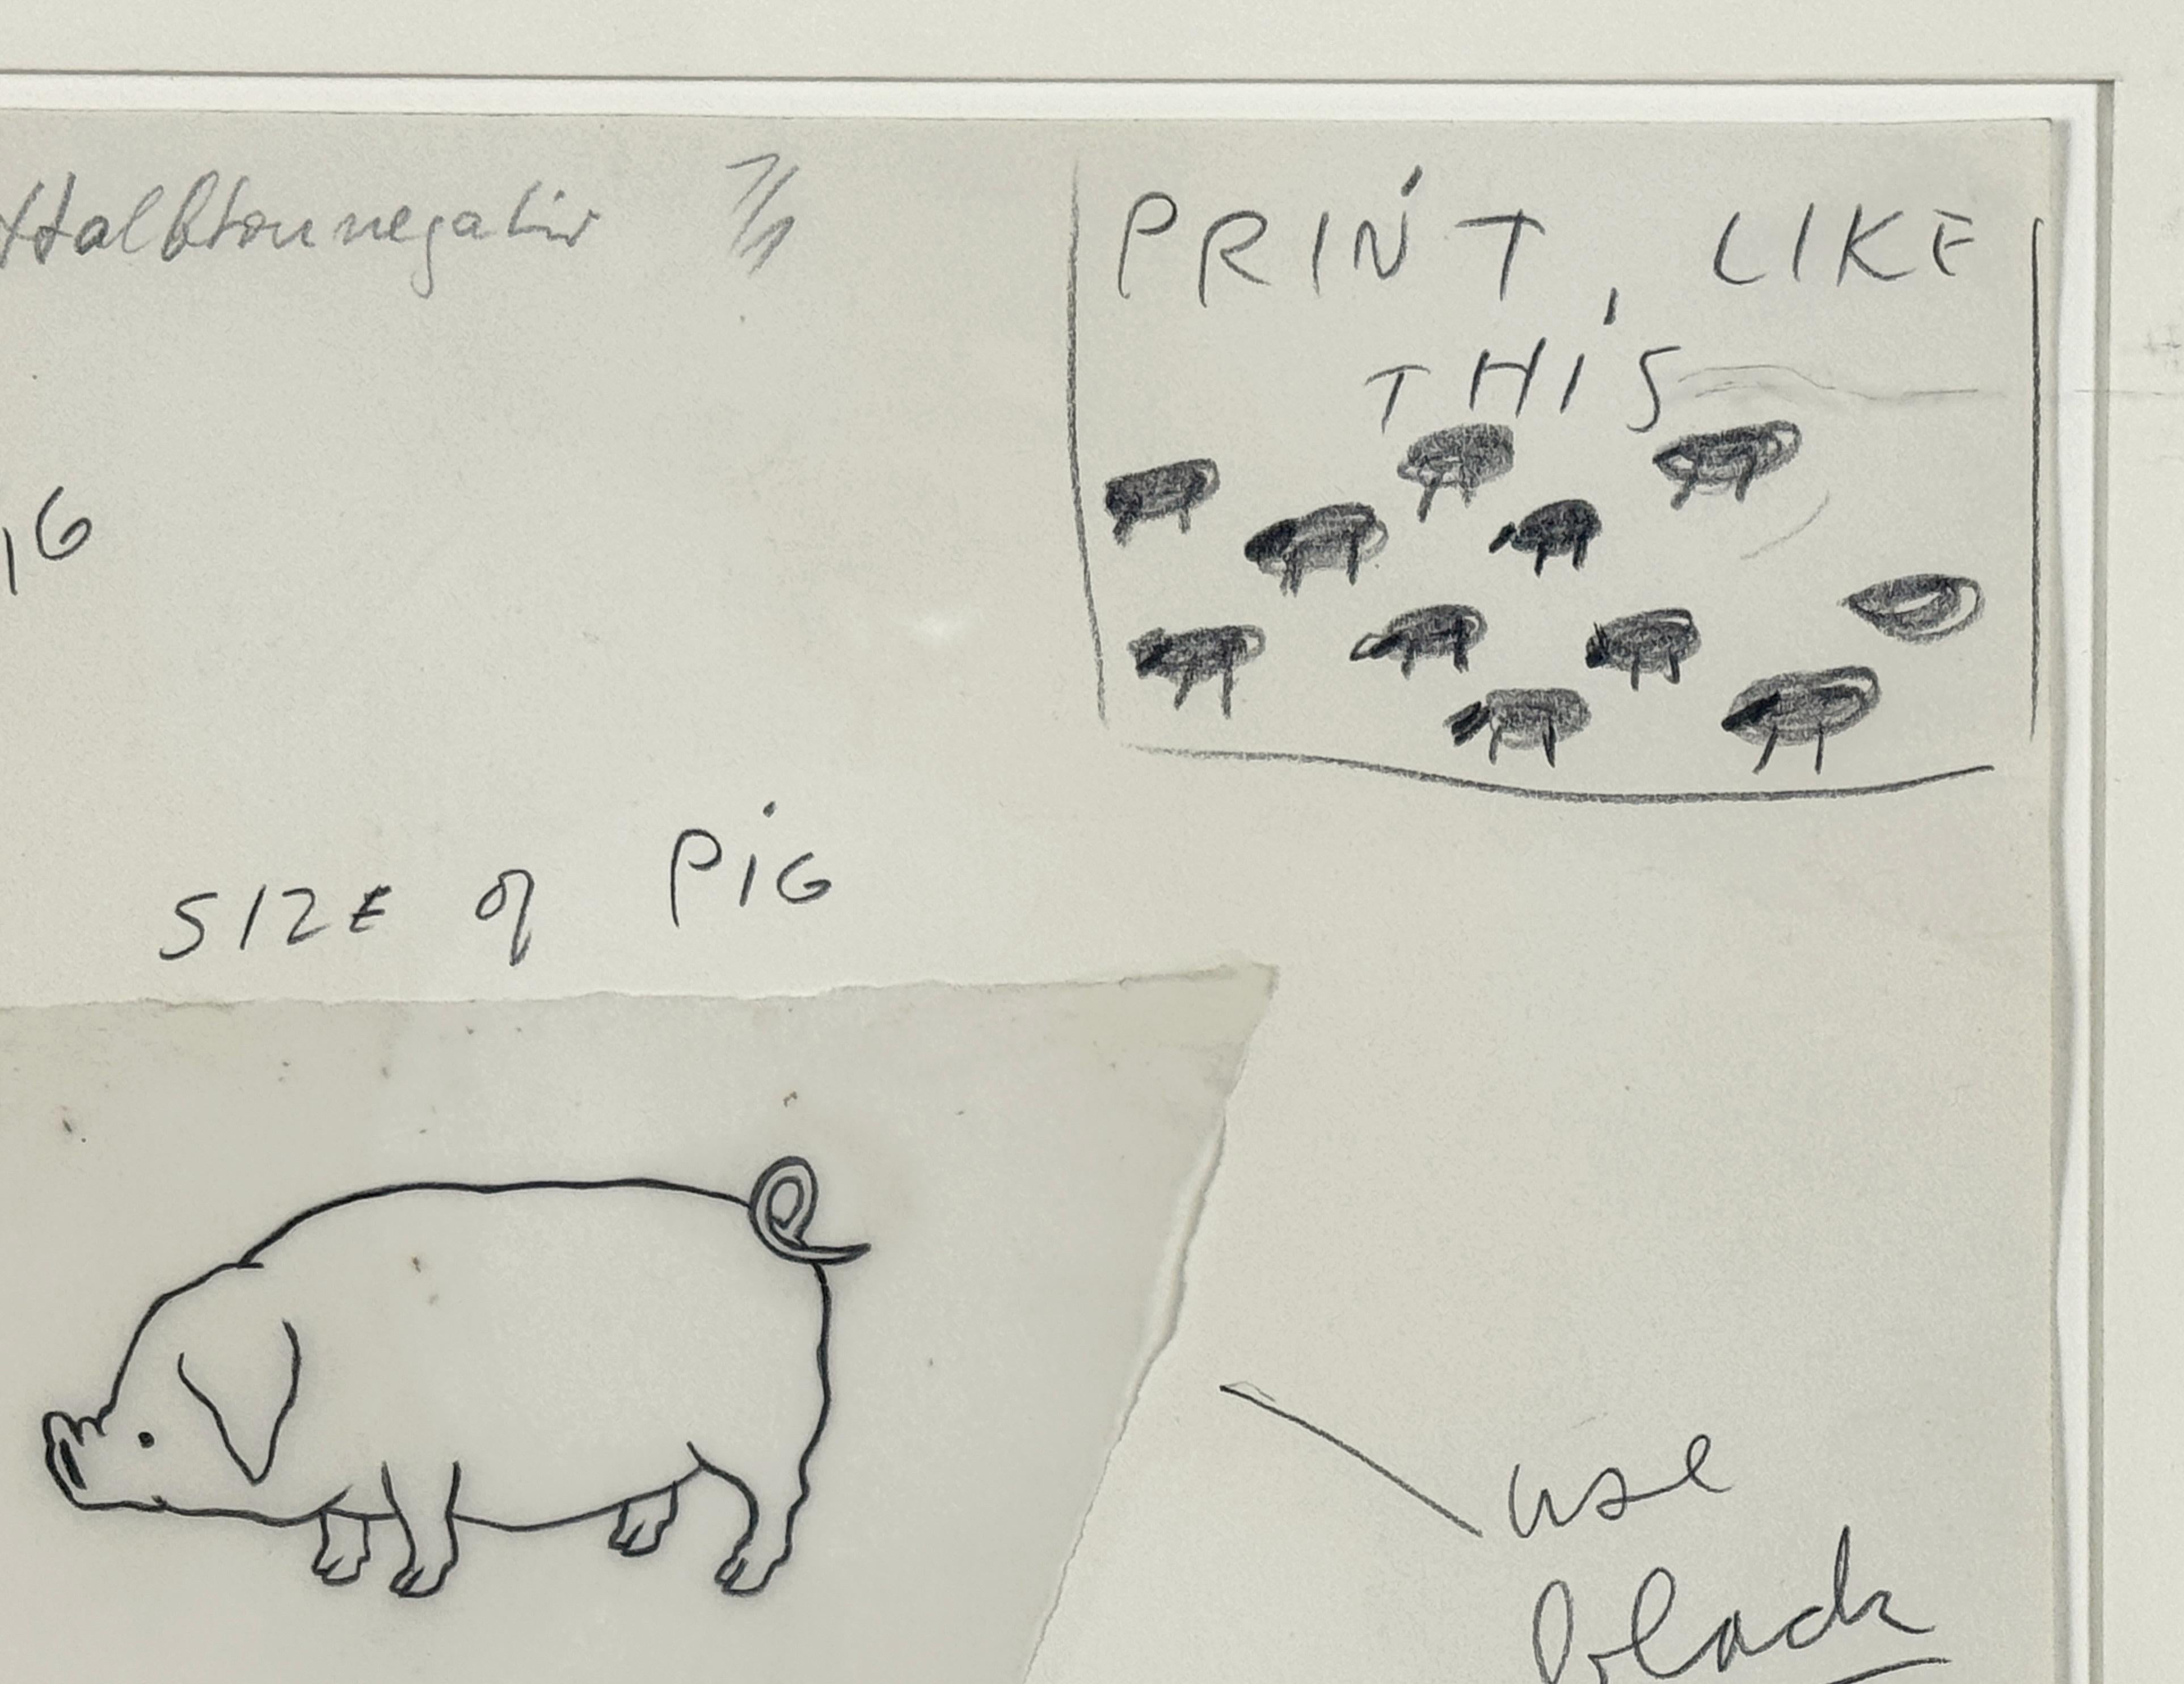 Halbtonnegativ 1/1
PRINT, LIKE
THIS
IG
SIZE of PIG
use
black